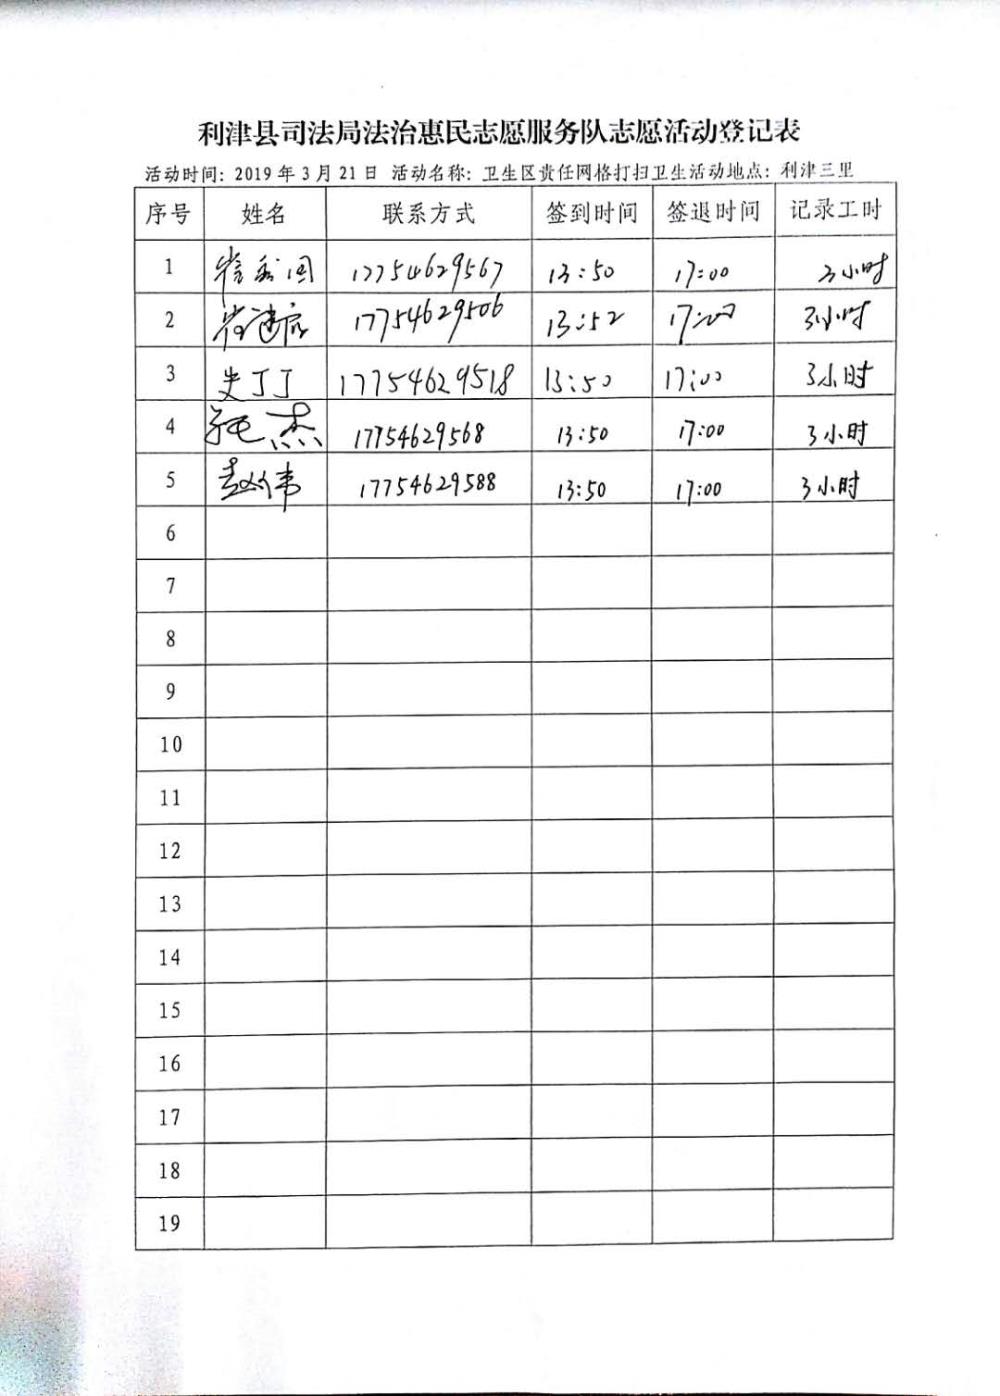 利津县司法局法治惠民志愿服务队志愿活动登记表
活动时间：2019年3月21日 活动名称：卫生区责任网格打扫卫生活动地点：利津三里
序号 姓名 联系方式 签到时间 签退时间 记录工时
1 17754629567 13:50 17:00 3小时
2 17754629506 13:52 17:00 3小时
3 史丁丁 17754629518 13:50 17:00 3小时
4 张杰 17754629568 13:50 17:00 3小时
5 赵伟 17754629588 13:50 17:00 3小时
6
7
8
9
10
11
12
13
14
15
16
17
18
19